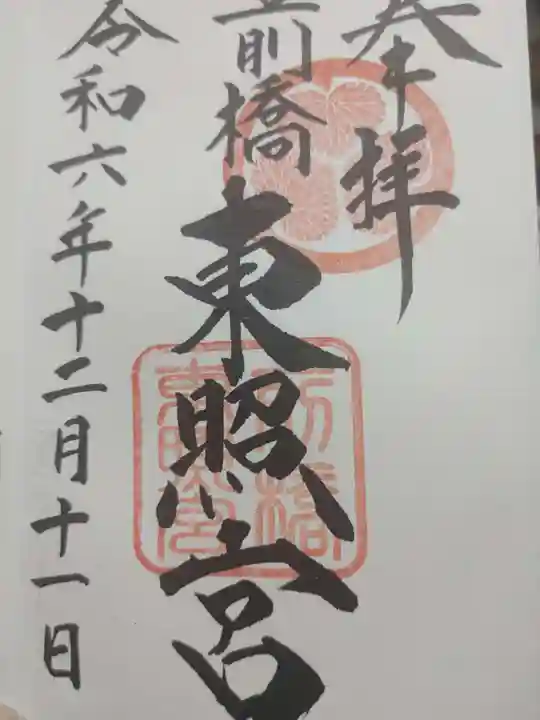 奉拝
前橋
東照宮
令和六年十二月十一日
前橋
東照宮